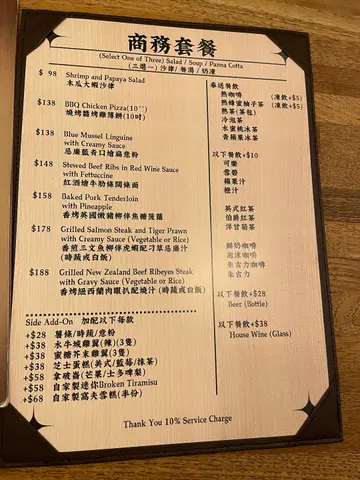 商務套餐
(Select One of Three) Salad / Soup / Panna Cotta
(三選一) 沙律/ 餐湯 / 奶凍
$ 98 Shrimp and Papaya Salad
木瓜大蝦沙律
$138 BBQ Chicken Pizza(10'')
燒烤醬烤雞薄餅(10吋)
$138 Blue Mussel Linguine
with Creamy Sauce
忌廉藍青口繪扁意粉
$148 Stewed Beef Ribs in Red Wine Sauce
with Fettuccine
紅酒燴牛肋條闊條面
$158 Baked Pork Tenderloin
with Pineapple
香烤英國嫩豬柳伴焦糖菠蘿
$178 Grilled Salmon Steak and Tiger Prawn
with Creamy Sauce (Vegetable or Rice)
香煎三文魚柳伴虎蝦配刁草忌廉汁
(時蔬或白飯)
$188 Grilled New Zealand Beef Ribeyes Steak
with Gravy Sauce (Vegetable or Rice)
香烤紐西蘭肉眼扒配燒汁 (時蔬或白飯)
Side Add-On 加配以下每款
+$28 薯條/時蔬/意粉
+$38 水牛城雞翼(辣)(3隻)
+$38 蜜糖芥末雞翼(3隻)
+$38 芝士蛋糕(美式/藍莓/抹茶)
+$58 拿破崙(芒果/士多啤梨)
+$58 自家製迷你Broken Tiramisu
+$68 自家製窩夫雪糕(半份)
奉送餐飲
熱咖啡 (凍飲+$5)
熱蜂蜜柚子茶 (凍飲+$5)
熱茶(茶包)
冷泡茶
水蜜桃冰茶
青蘋果冰茶
以下餐飲+$10
可樂
雪碧
蘋果汁
橙汁
英式紅茶
伯爵紅茶
洋甘菊茶
鮮奶咖啡
泡沫咖啡
朱古力咖啡
朱古力
以下餐飲+$28
Beer (Bottle)
以下餐飲+$38
House Wine (Glass)
Thank You 10% Service Charge